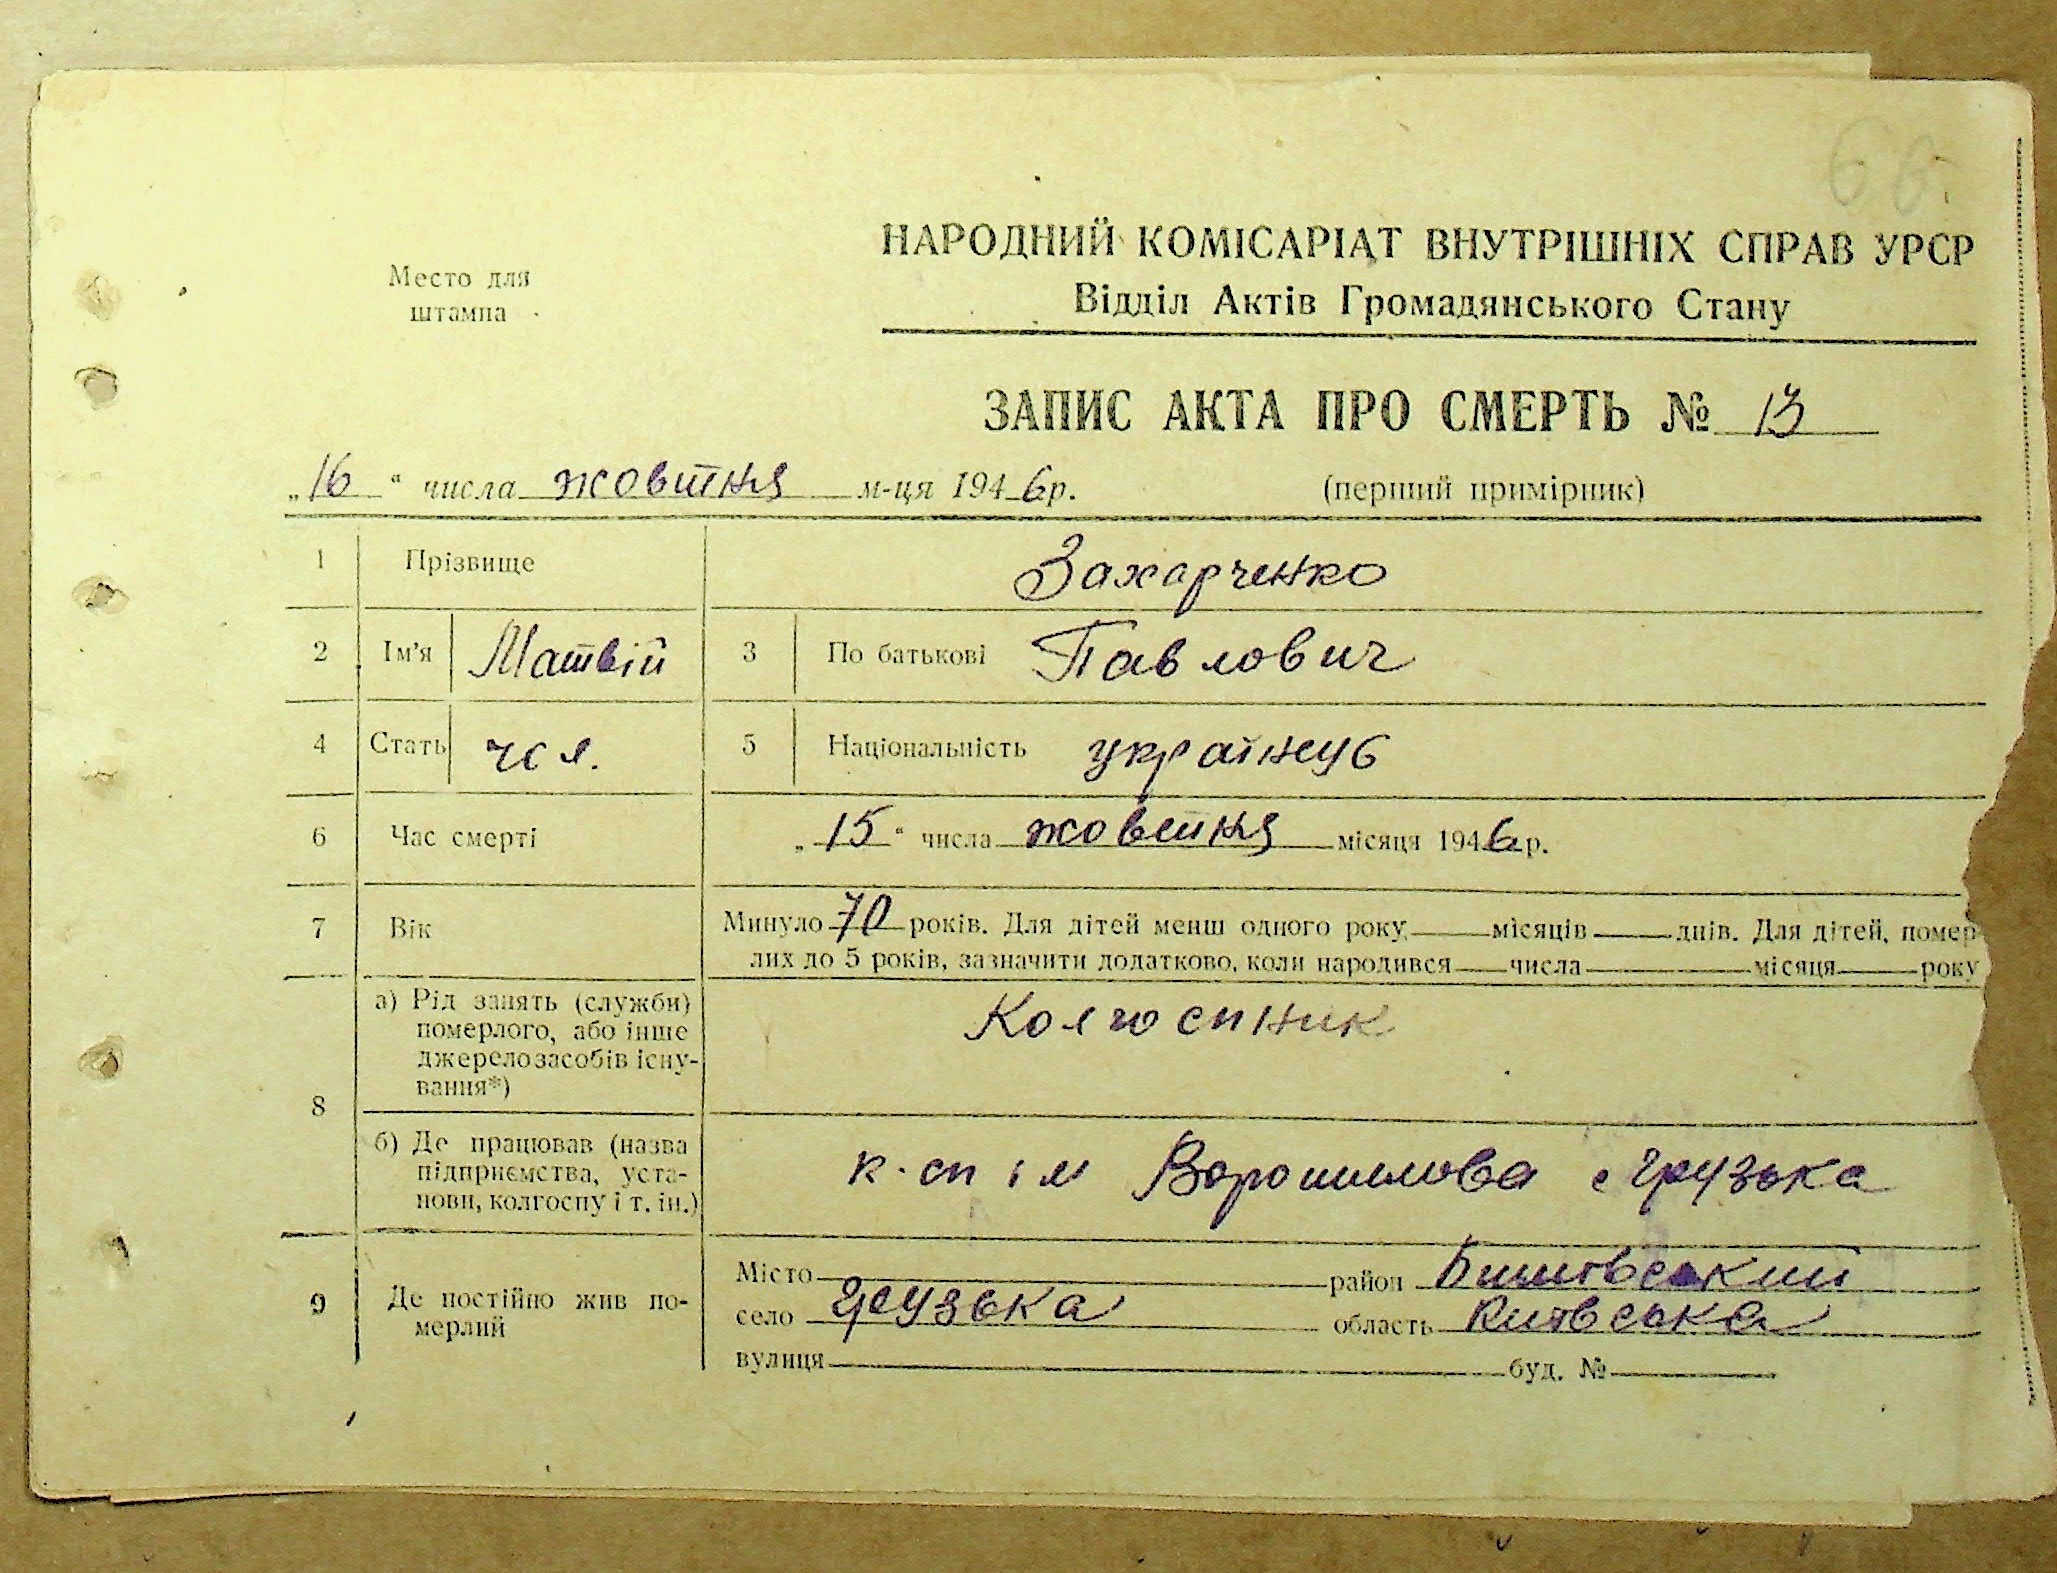 66
Место для
штампа
НАРОДНИЙ КОМІСАРІАТ ВНУТРІШНІХ СПРАВ УРСР
Відділ Актів Громадянського Стану
ЗАПИС АКТА ПРО СМЕРТЬ № 13
„16“ числа жовтня м-ця 1946р. (перший примірник)
1 Прізвище Захарченко
2 Ім'я Матвій 3 По батькові Павлович
4 Стать чол. 5 Національність українець
6 Час смерті „15“ числа жовтня місяця 1946р.
7 Вік Минуло 70 років. Для дітей менш одного року місяців днів. Для дітей, помер-
лих до 5 років, зазначити додатково, коли народився числа місяця року
8 а) Рід занять (служби) Колгоспник
померлого, або інше
джерело засобів існу-
вання*)
б) Де працював (назва к-сп ім Ворошилова с Грузька
підприємства, уста-
нови, колгоспу і т. ін.)
9 Де постійно жив по-
мерлий
Місто район Бишівський
село Грузька область Київська
вулиця буд. №